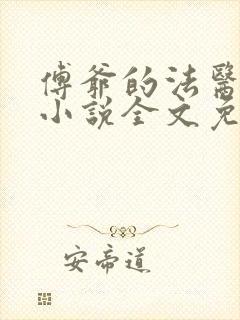 傅爺的法醫
小說全文免
安帝道